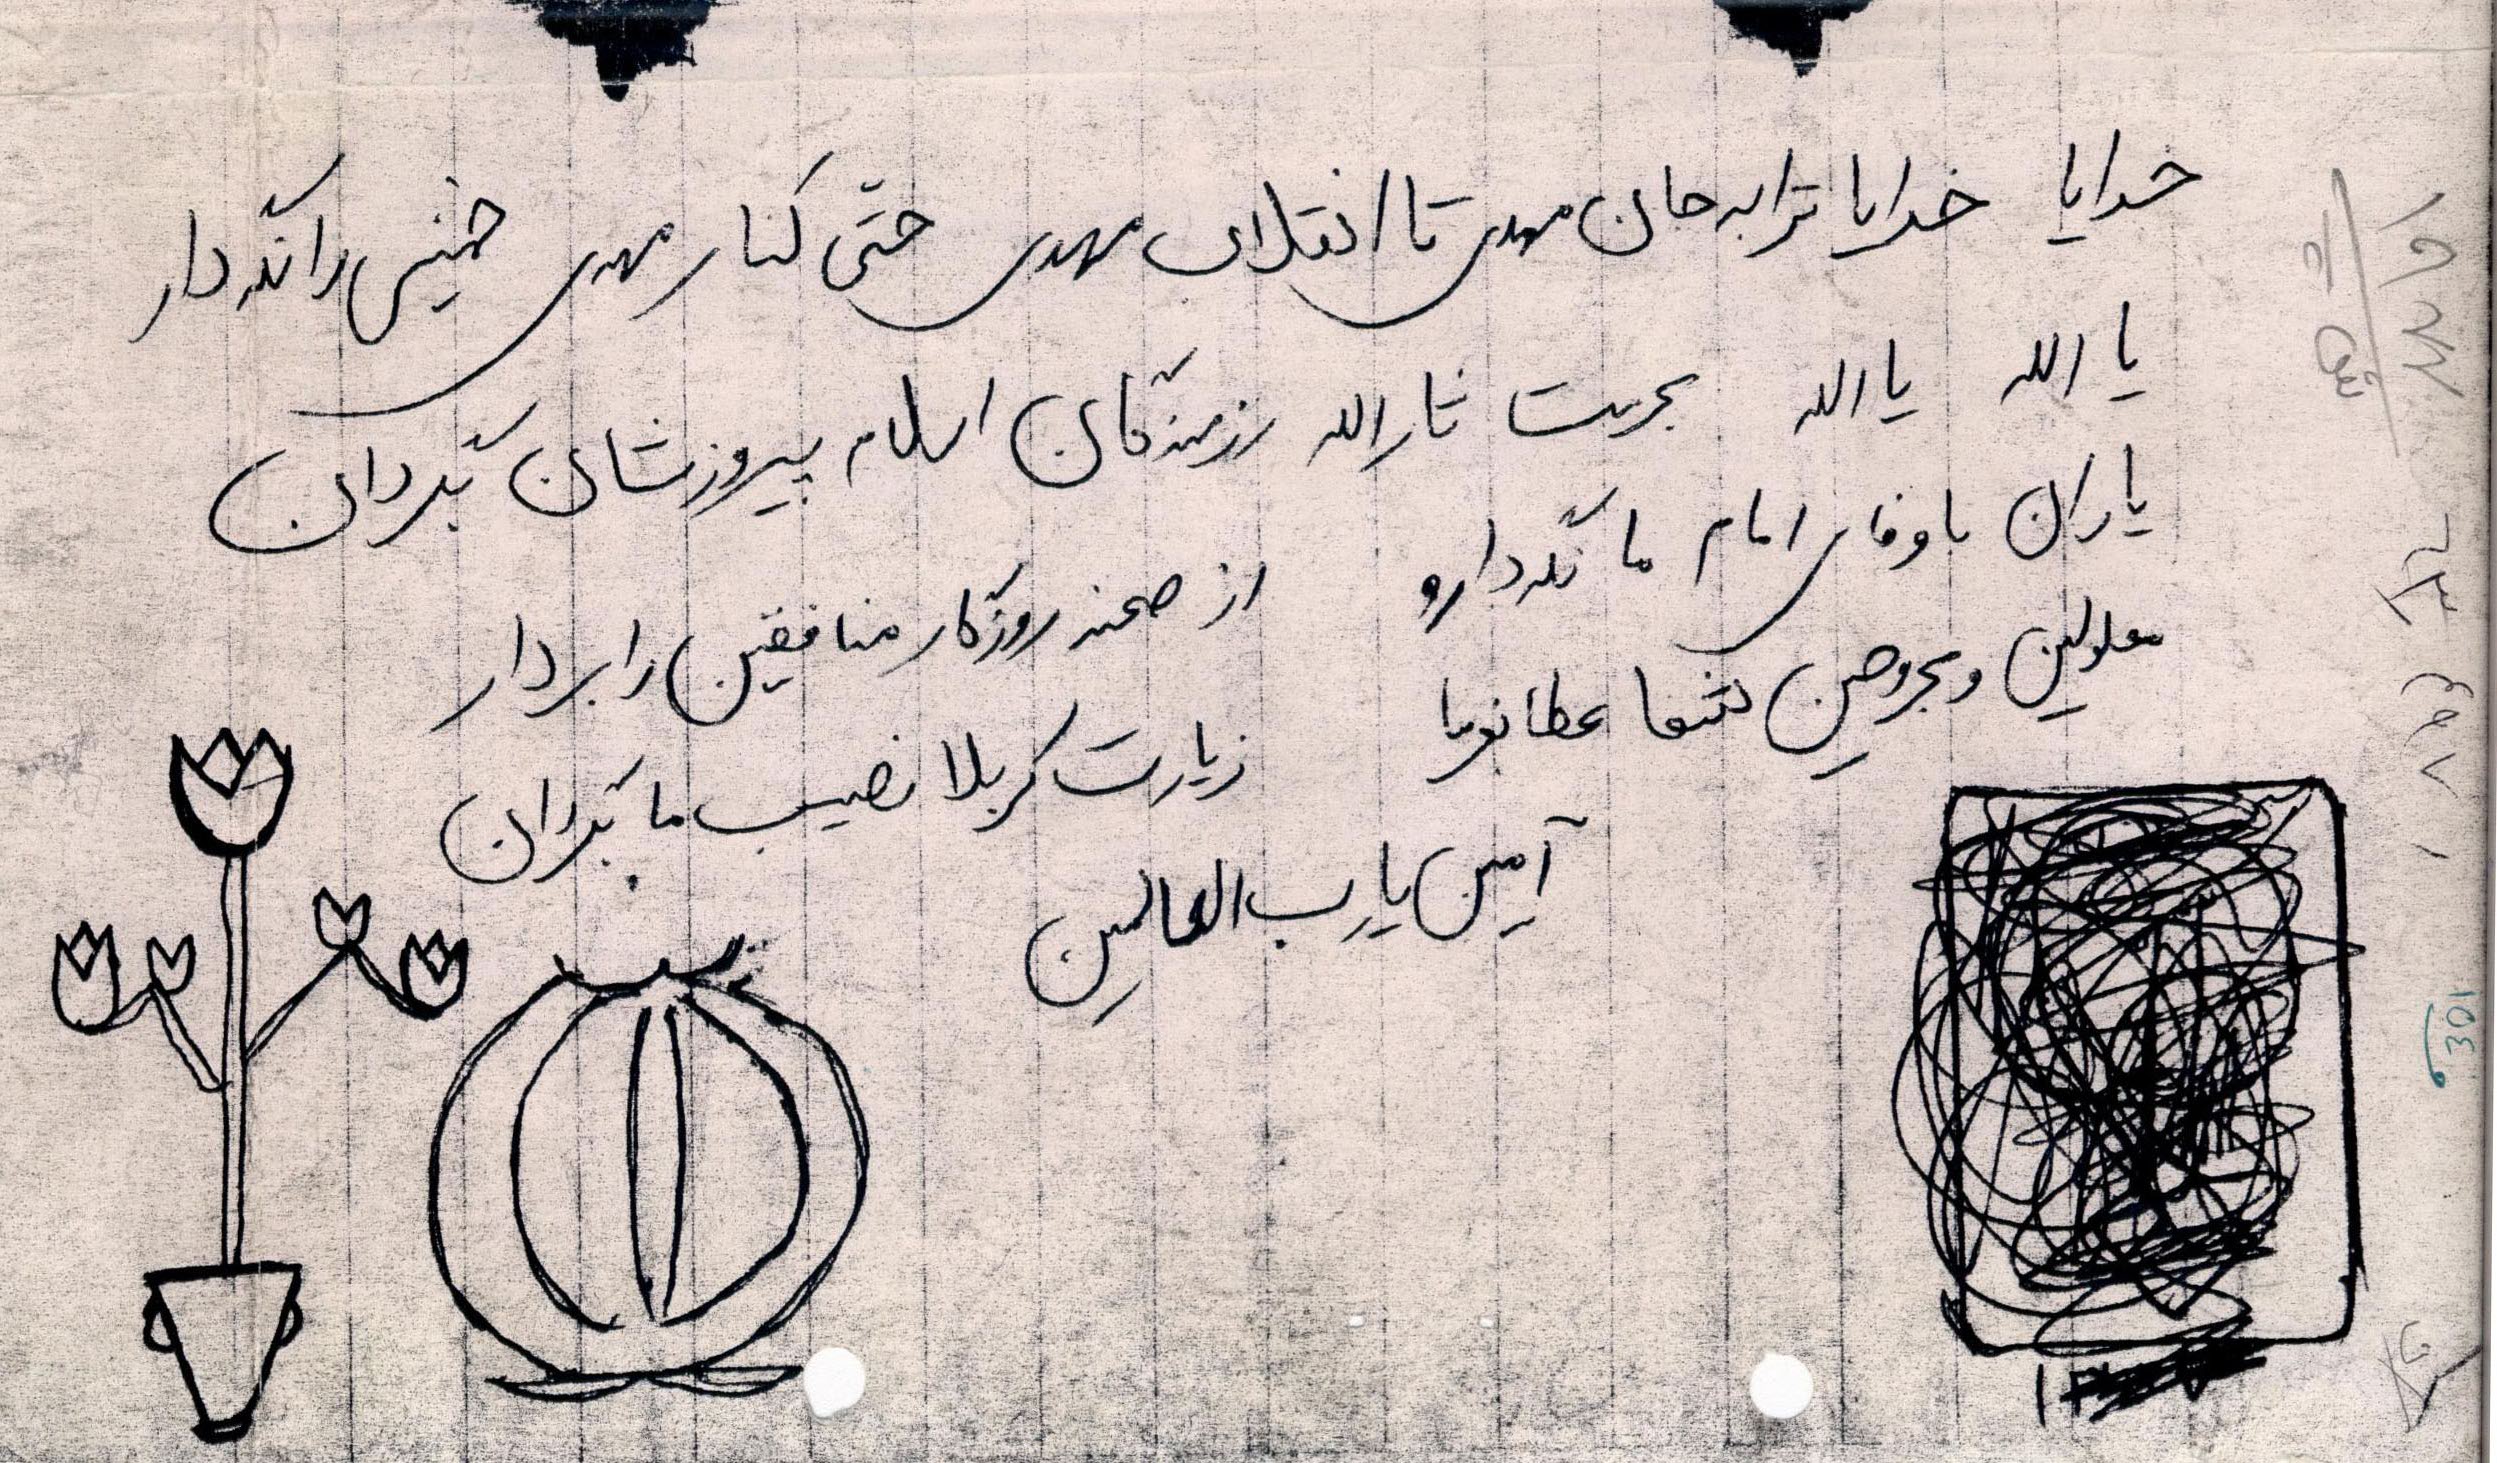 خدایا خدایا ترا به جان مهدی تا انقلاب مهدی حتی کنار مهدی خمینی را نگه دار
یا الله یا الله بحرمت ثارالله رزمندگان اسلام پیروزشان بگردان
یاران باوفای امام ما نگه دارو از صحنه روزگار منافقین را بردار
معلولین و مجروحین شفا عطا بفرما زیارت کربلا نصیب ما بگردان
آمین یا رب العالمین
301